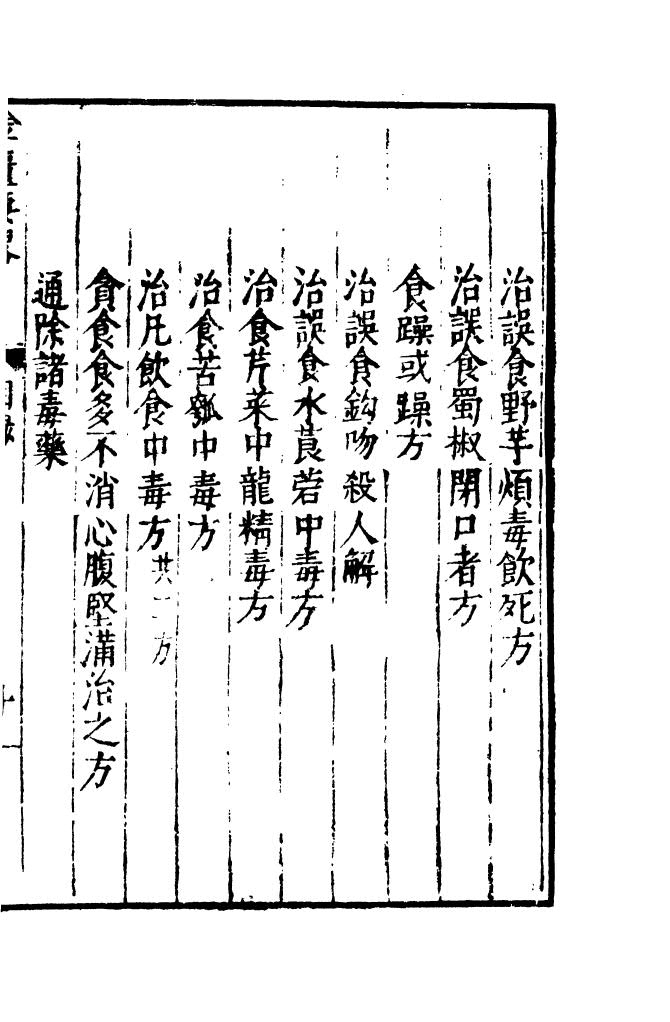 治誤食野芋煩毒飲死方
治誤食蜀椒閉口者方
食躁或躁方
治誤食鈎吻殺人解
治誤食水莨菪中毒方
治食芹菜中龍精毒方
治食苦瓠中毒方
治凡飲食中毒方共二方
貪食食多不消心腹堅滿治之方
通除諸毒藥